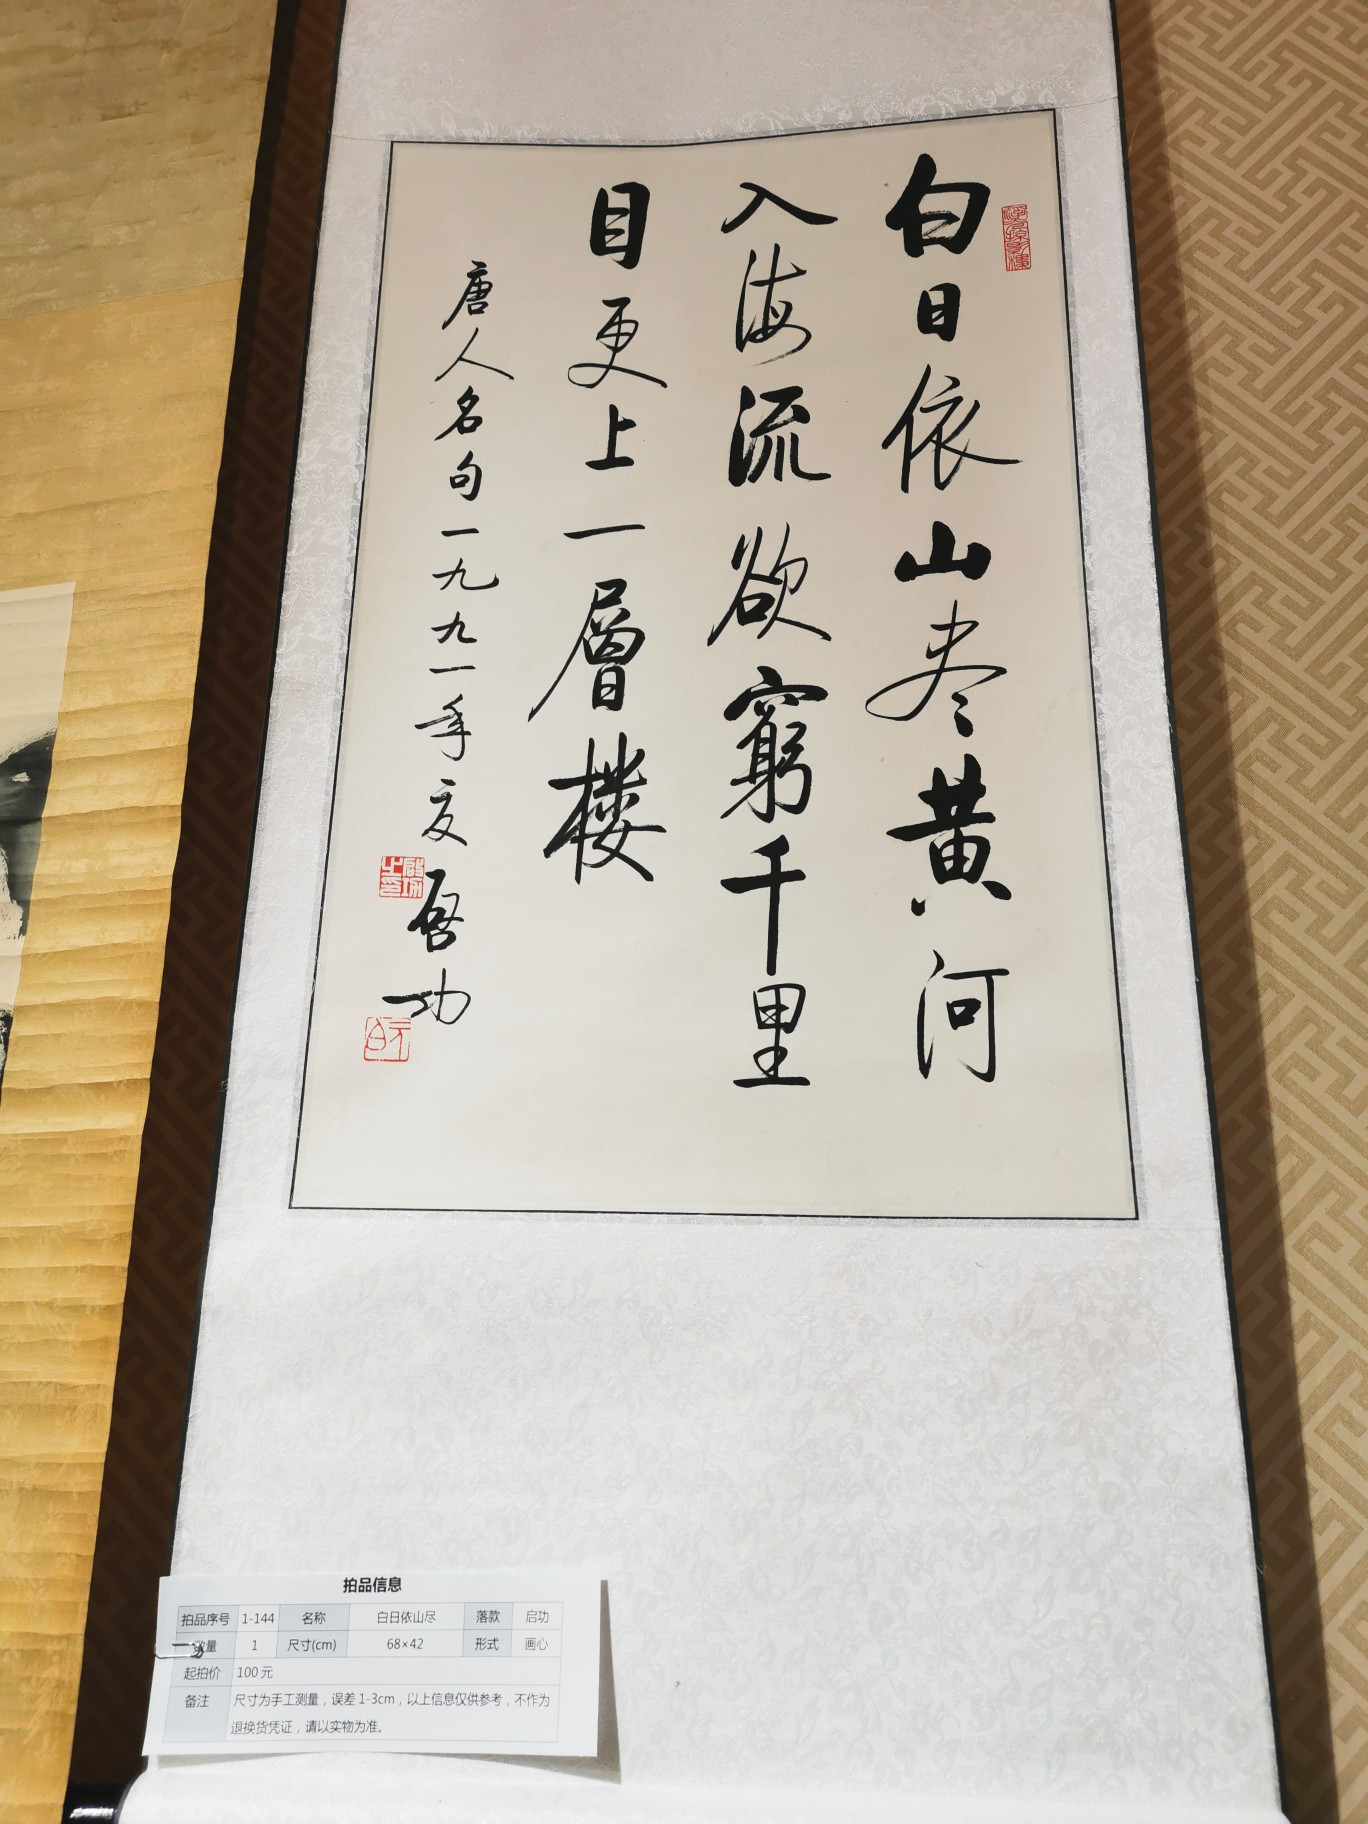 白日依山尽黄河
入海流欲窮千里
目更上一層楼
唐人名句一九九一年夏启功
拍品信息
拍品序号 1-144 名称 白日依山尽 落款 启功
数量 1 尺寸(cm) 68×42 形式 画心
起拍价 100元
备注 尺寸为手工测量，误差1-3cm，以上信息仅供参考，不作为
退换货凭证，请以实物为准。